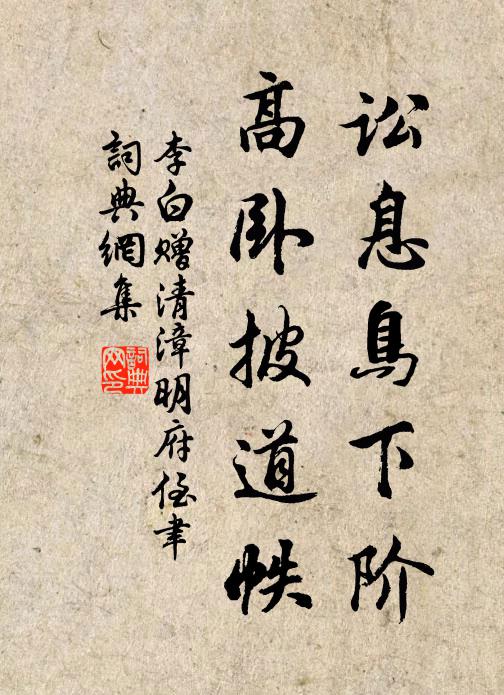 讼息鳥下阶
高卧披道帙
李白赠清漳明府侄聿
詞典網集
詞典網印